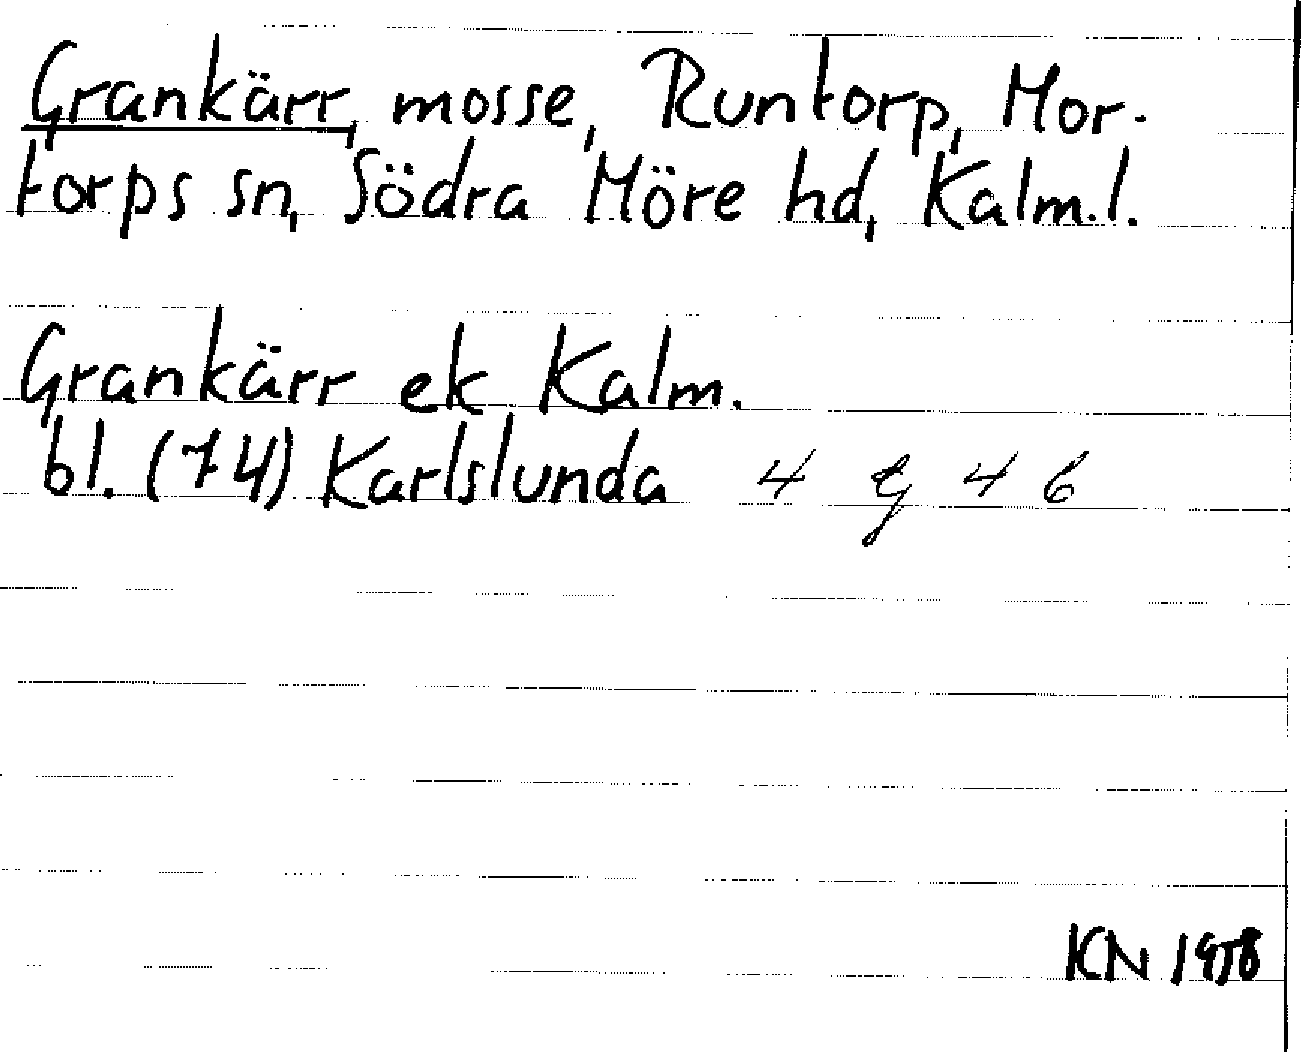 Grankärr, mosse, Runtorp, Mor-
torps sn, Södra Möre hd, Kalm.l.
Grankärr ek Kalm.
bl. (74) Karlslunda 4 g 4 6
KN 1958